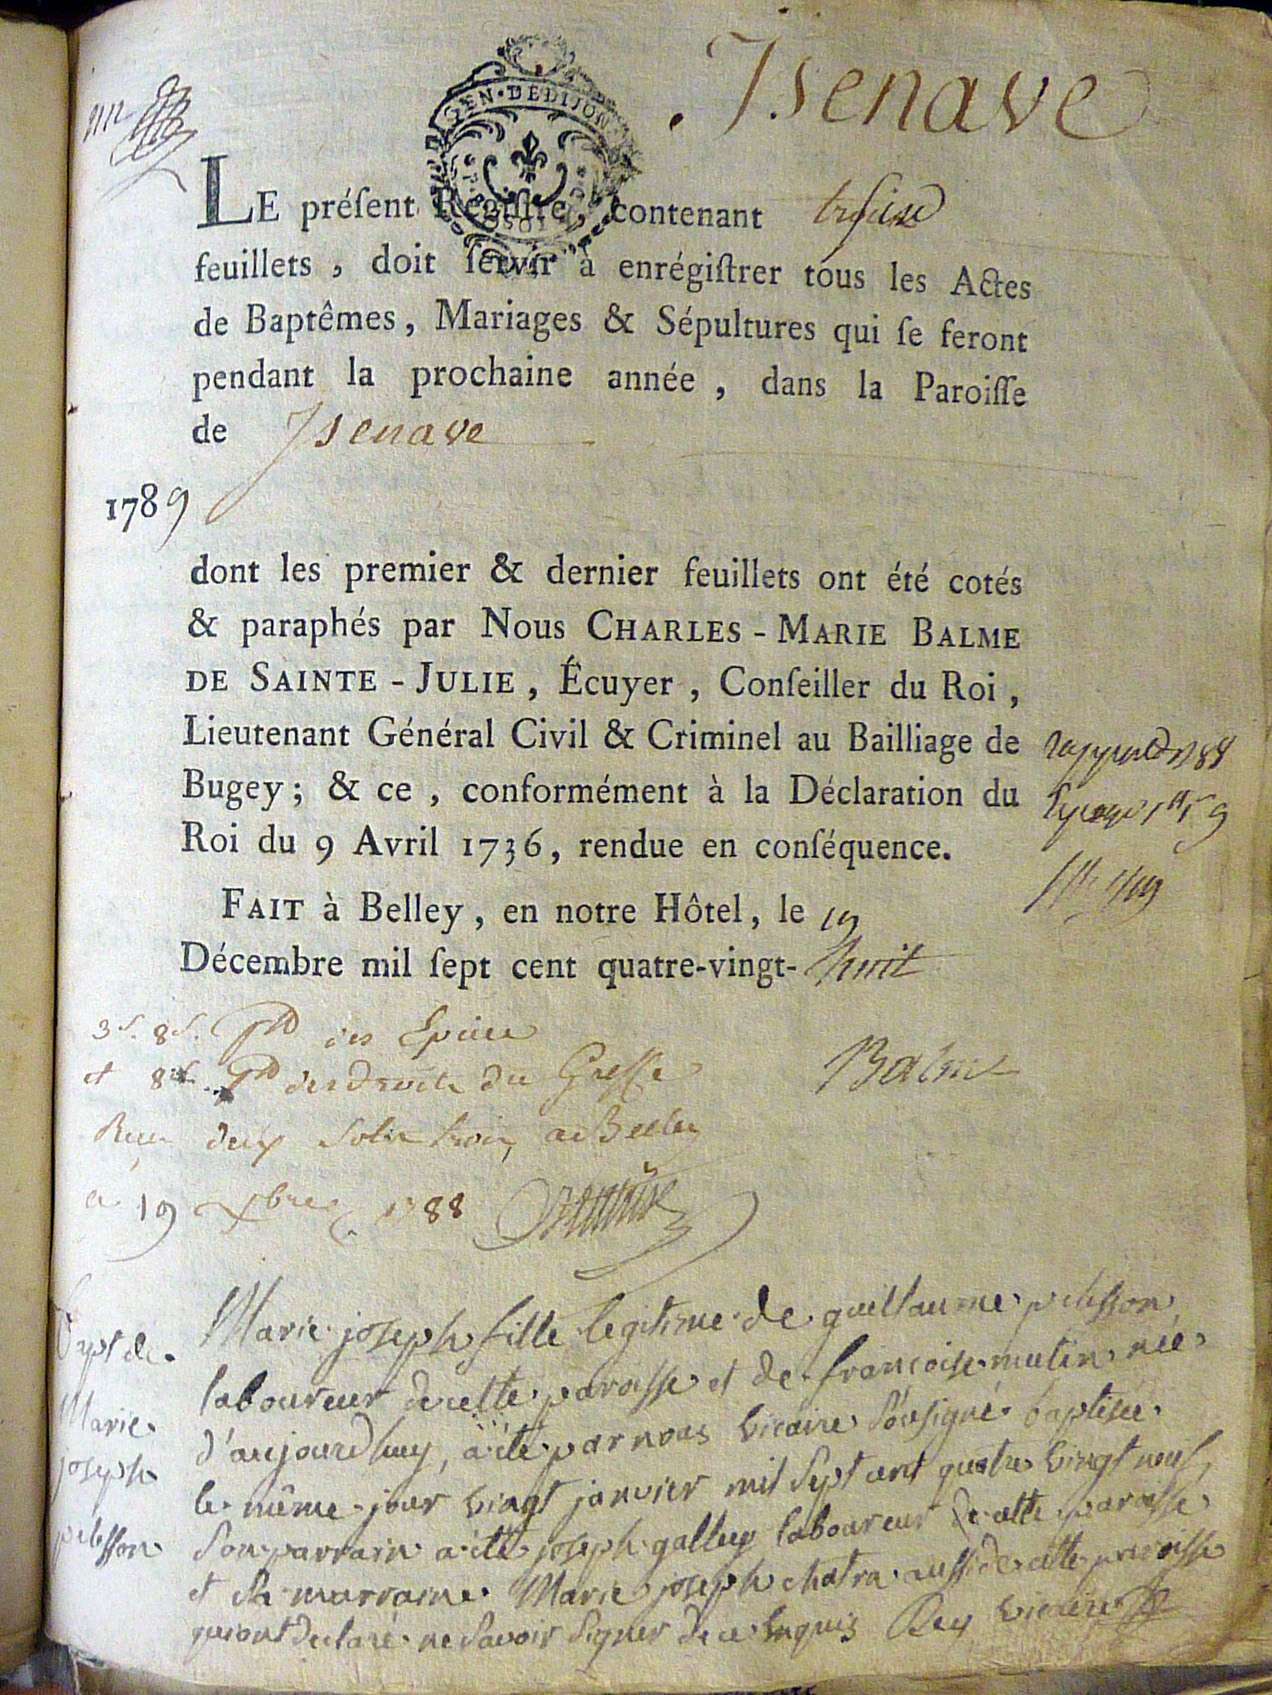 Isenave
GEN·DE DIJON
LE préſent Regiſtre, contenant treize
feuillets, doit ſervir à enrégiſtrer tous les Actes
de Baptêmes, Mariages & Sépultures qui ſe feront
pendant la prochaine année, dans la Paroiſſe
de Isenave
1789
dont les premier & dernier feuillets ont été cotés
& paraphés par Nous CHARLES-MARIE BALME
DE SAINTE-JULIE, Écuyer, Conſeiller du Roi,
Lieutenant Général Civil & Criminel au Bailliage de
Bugey; & ce, conformément à la Déclaration du
Roi du 9 Avril 1736, rendue en conſéquence.
FAIT à Belley, en notre Hôtel, le 19
Décembre mil ſept cent quatre-vingt-huit
3s. 8d. pd des Epices
et 8s. pd des droits du Greffe
Balme
Reçu deux sols trois, a Belley
a 19 Xbre 1788
Bapt de
Marie
joseph
pelisson
Marie joseph fille legitime de guillaume pelisson
laboureur de cette paroisse et de francoise mutin née
d'aujourdhuy, a été par nous vicaire soussigné baptisée
le même jour vingt janvier mil sept cent quatre vingt neuf,
son parrain a été joseph galley laboureur de cette paroisse
et sa marraine Marie joseph chatra aussi de cette paroisse
qui ont declaré ne savoir signer de ce enquis Rey vicaire